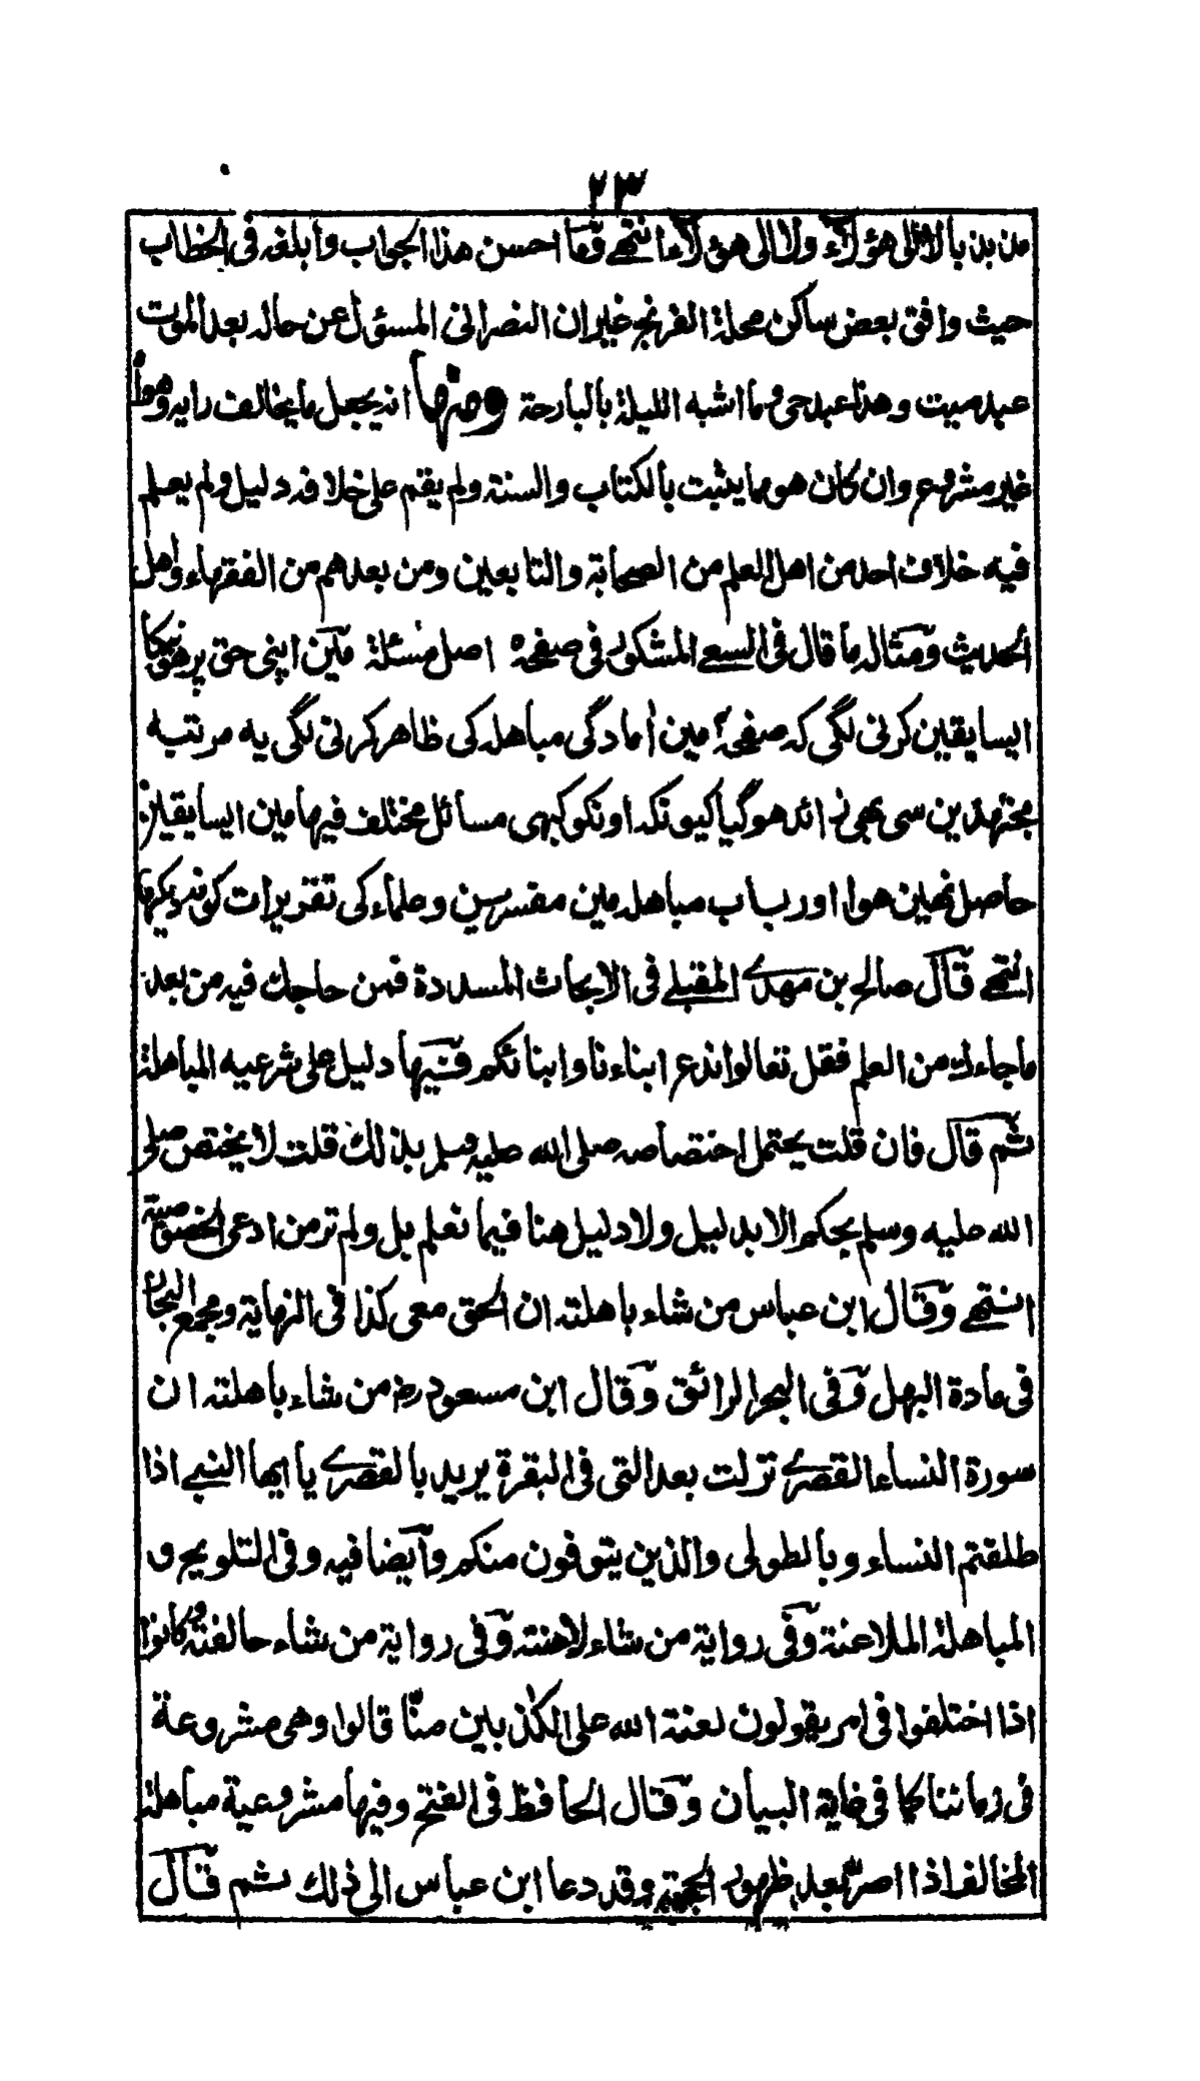 ٢٣
مذبذبا لا الى هؤلاء ولا الى هؤلاء انتهى وما احسن هذا الجواب وابلغه فى الخطاب
حيث وافق بعض ساكن محلة الفرنج خبر ان النصرانى المسئول عن حاله بعد الموت
عبد ميت وهذا عبد حى وما اشبه الليلة بالبارحة ومنها انه يجعل ما يخالف رايه وهواه
غير مشروع وان كان هو مما يثبت بالكتاب والسنة ولم يقم على خلافه دليل ولم يعلم
فيه خلاف احد من اهل العلم من الصحابة والتابعين ومن بعدهم من الفقهاء واهل
الحديث ومثاله ما قال فى السعے المشكور فى صفحه اصل مسئلة مين اپنى حق پر هونيكا
ايسا يقين كرنى لگى كه صفحه مين امادگى مباهله كى ظاهر كرنى لگى يه مرتبه
مجتهدين سى بهى زائد هوگيا كيونكه اونكو كبهى مسائل مختلف فيها مين ايسا يقين
حاصل نهين هوا اور بباب مباهله مين مفسرين وعلماء كى تقريرات كو نديكها
انتهے قال صالح بن مهدے المقبلے فى الابحاث المسددة فمن حاجك فيه من بعد
ما جاءك من العلم فقل تعالوا ندع ابناءنا وابنائكم فيها دليل على شرعيه المباهلة
ثم قال فان قلت يحتمل اختصاصه صلى الله عليه وسلم بذلك قلت لا يختص صلى
الله عليه وسلم بحكم الا بدليل ولا دليل هنا فيما نعلم بل ولم نر من ادعى الخصوصية
انتهے وقال ابن عباس من شاء باهلته ان الحق معى كذا فى النهاية ومجمع البحار
فى مادة البهل وفى البحر الرائق وقال ابن مسعود رض من شاء باهلته ان
سورة النساء القصرے نزلت بعد التى فى البقرة يريد بالقصرے يا ايها النبے اذا
طلقتم النساء وبالطولى والذين يتوفون منكم وايضا فيه وفى التلويح و
المباهلة الملاعنة وفى رواية من شاء لاعنته وفى رواية من شاء حالفته وكانوا
اذا اختلفوا فى امر يقولون لعنة الله على الكاذبين منّا قالوا وهى مشروعة
فى زماننا كما فى غاية البيان وقال الحافظ فى الفتح وفيها مشروعية مباهلة
المخالف اذا اصر بعد ظهور الحجة وقد دعا ابن عباس الى ذلك ثم قال